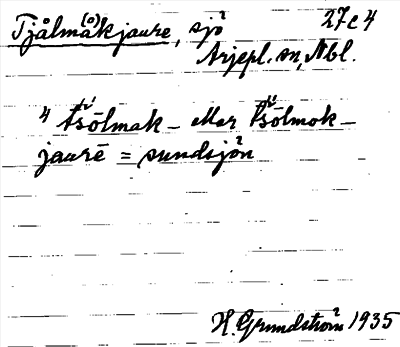 Tjålmåk(o)jaure, sjö 27c4
Arjepl. sn, Nbl.
4 tšōlmak - eller tšōlmok -
jaurē = sundsjön
H. Grundström 1935